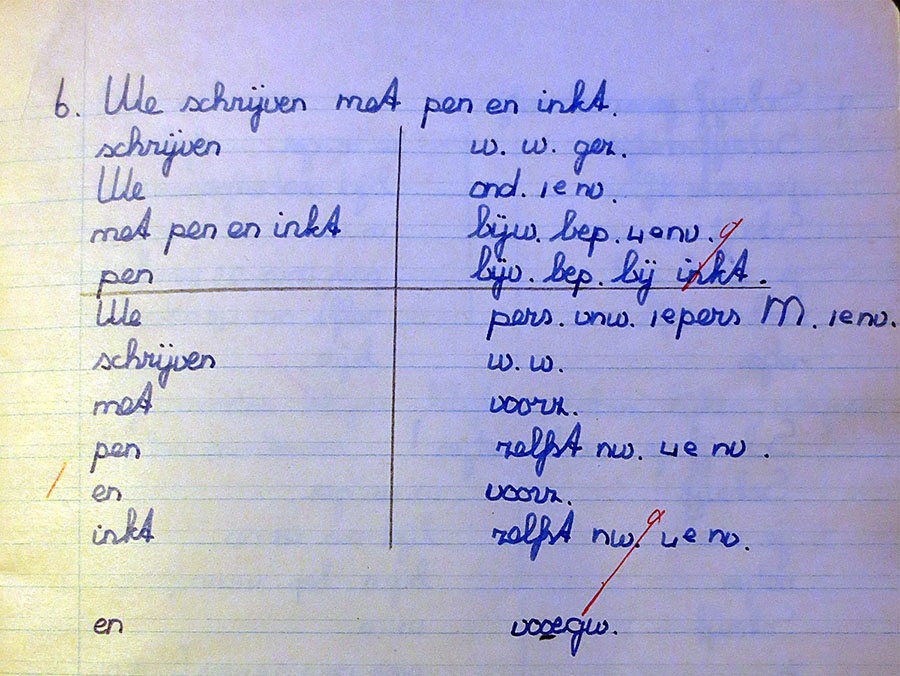 6. We schrijven met pen en inkt.
schrijven w. w. gez.
We ond. 1e nv.
met pen en inkt bijw. bep. 4e nv.
pen bijv. bep. bij inkt.
We pers. vnw. 1e pers M. 1e nv.
schrijven w. w.
met voorz.
pen zelfst nw. 4e nv.
en voorz.
inkt zelfst nw. 4e nv.
en vooegw.